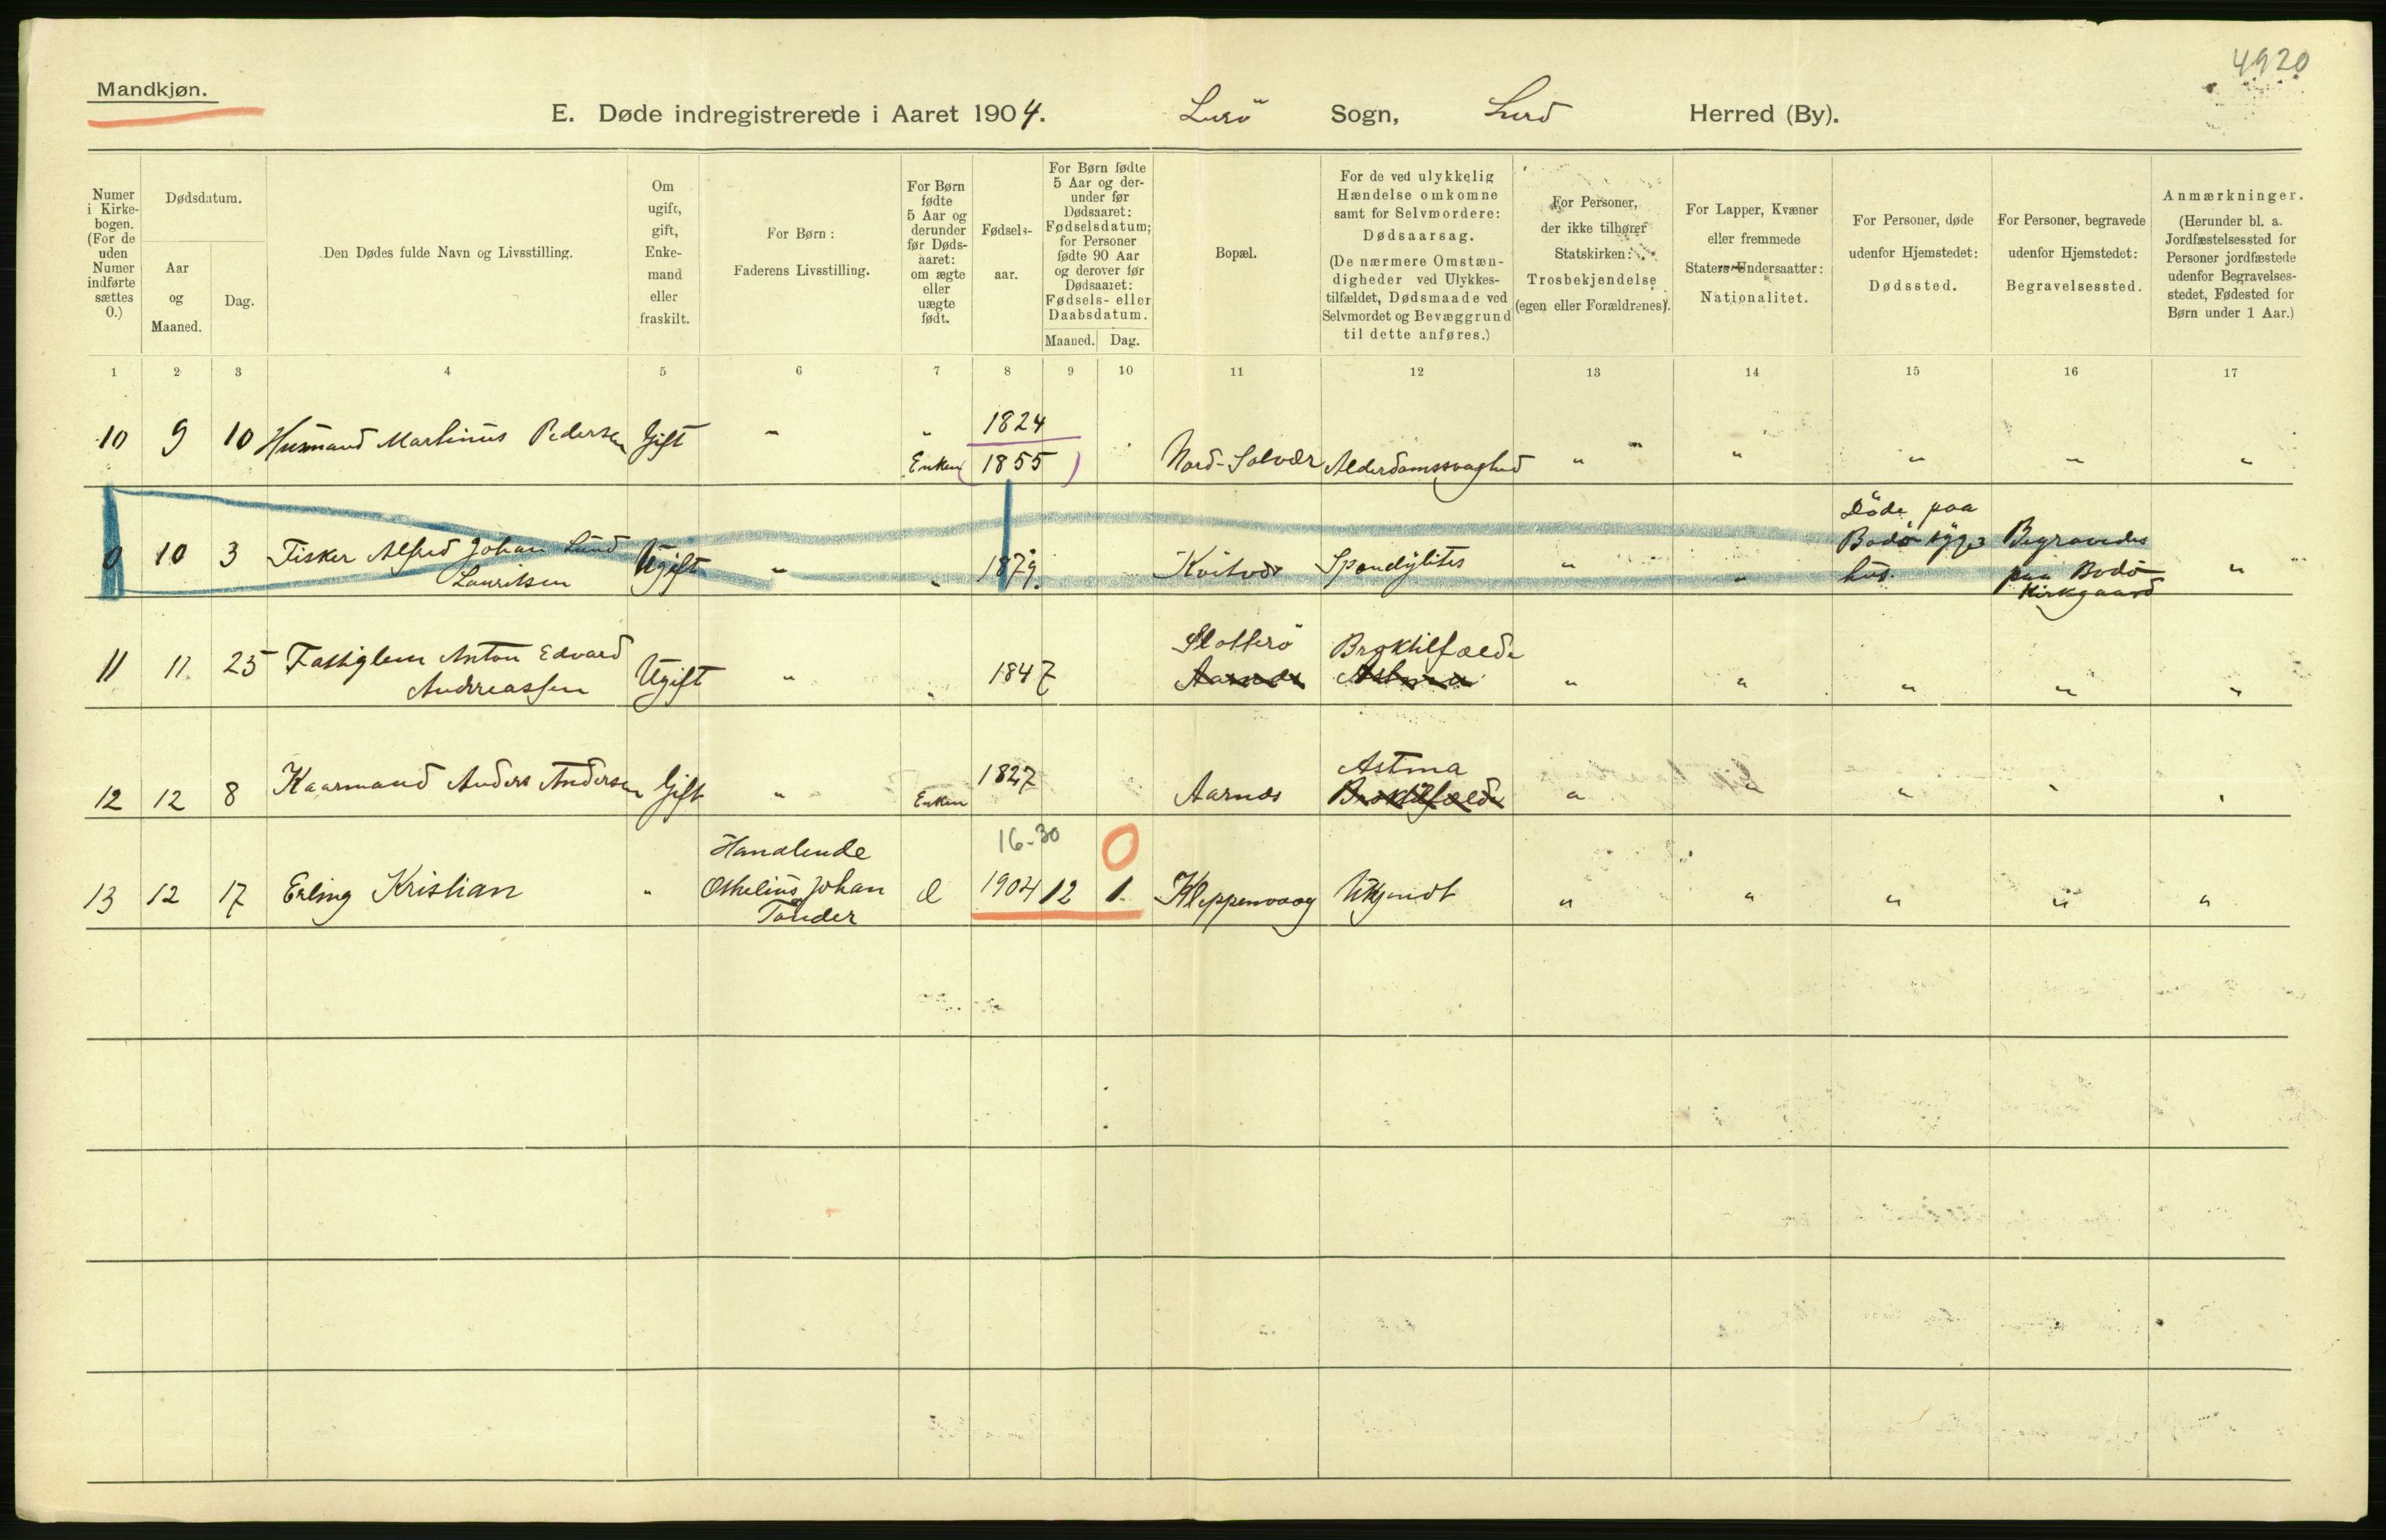 4920
Mandkjøn.
E. Døde indregistrerede i Aaret 1904. Lurö Sogn, Lurö Herred (By).
Numer i Kirke-bogen. (For de uden Numer indførte sættes 0.)
Dødsdatum.
Aar og Maaned.
Dag.
Den Dødes fulde Navn og Livsstilling.
Om ugift, gift, Enke-mand eller fraskilt.
For Børn: Faderens Livsstilling.
For Børn fødte 5 Aar og derunder før Døds-aaret: om ægte eller uægte født.
Fødsels-aar.
For Børn fødte 5 Aar og der-under før Dødsaaret: Fødselsdatum; for Personer fødte 90 Aar og derover før Dødsaaret: Fødsels- eller Daabsdatum.
Maaned. Dag.
Bopæl.
For de ved ulykkelig Hændelse omkomne samt for Selvmordere: Dødsaarsag. (De nærmere Omstæn-digheder ved Ulykkes-tilfældet, Dødsmaade ved Selvmordet og Bevæggrund til dette anføres.)
For Personer, der ikke tilhører Statskirken: Trosbekjendelse (egen eller Forældrenes).
For Lapper, Kvæner eller fremmede Staters Undersaatter: Nationalitet.
For Personer, døde udenfor Hjemstedet: Dødssted.
For Personer, begravede udenfor Hjemstedet: Begravelsessted.
Anmærkninger. (Herunder bl. a. Jordfæstelsessted for Personer jordfæstede udenfor Begravelses-stedet, Fødested for Børn under 1 Aar.)
1 2 3 4 5 6 7 8 9 10 11 12 13 14 15 16 17
1824
10 9 10 Husmand Martinus Pedersen Gift " "
Enken (1855) Nord-Solvær Alderdomssvaghed " " " " "
Döde paa
0 10 3 Fisker Alfred Johan Lund Bodö syge Begravedes
Lauritsen Ugift " " 1879. Kvitvær Spondylites " " hus. paa Bodö "
Kirkgaard
Slotterö Broktilfælde
11 11 25 Fattiglem Anton Edvard
Andreassen Ugift " " 1847 Aarnes Astma " " " " "
Astma
12 12 8 Kaarmand Anders Andersen Gift " Enken 1827 Aarnes Broktilfælde " " " "
Handlende 16-30 0
13 12 17 Erling Kristian " Othelius Johan 1904 12 1. Kleppenvaag Ukjendt " " " " "
Tønder